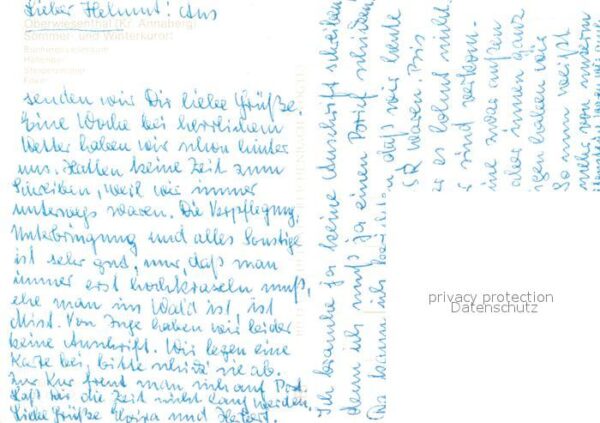 Lieber Helmut! Aus
Oberwiesenthal (Kr. Annaberg)
Sommer- und Winterkurort
senden wir Dir liebe Grüße.
Eine Woche bei herrlichem
Wetter haben wir schon hinter
uns. Hatten keine Zeit zum
Schreiben, weil wir immer
unterwegs waren. Die Verpflegung,
Unterbringung und alles Sonstige
ist sehr gut, nur, daß man
immer erst hochkraxeln muß,
ehe man im Wald ist, ist
Mist. Von Inge haben wir leider
keine Anschrift. Wir legen eine
Karte bei, bitte schick' sie ab.
Zur Kur freut man sich auf Post.
Laß Dir die Zeit nicht lang werden.
Liebe Grüße und
Ich brauche ja keine Anschrift schreiben
denn ich muß ja einen Brief schicken.
Da kann ich
daß wir heute
waren. Bis
er es lohnt nicht.
sind
ine zwar außen
aber innen ganz
igen haben wir
So nun weißt
mehr von unserm
privacy protection
Datenschutz